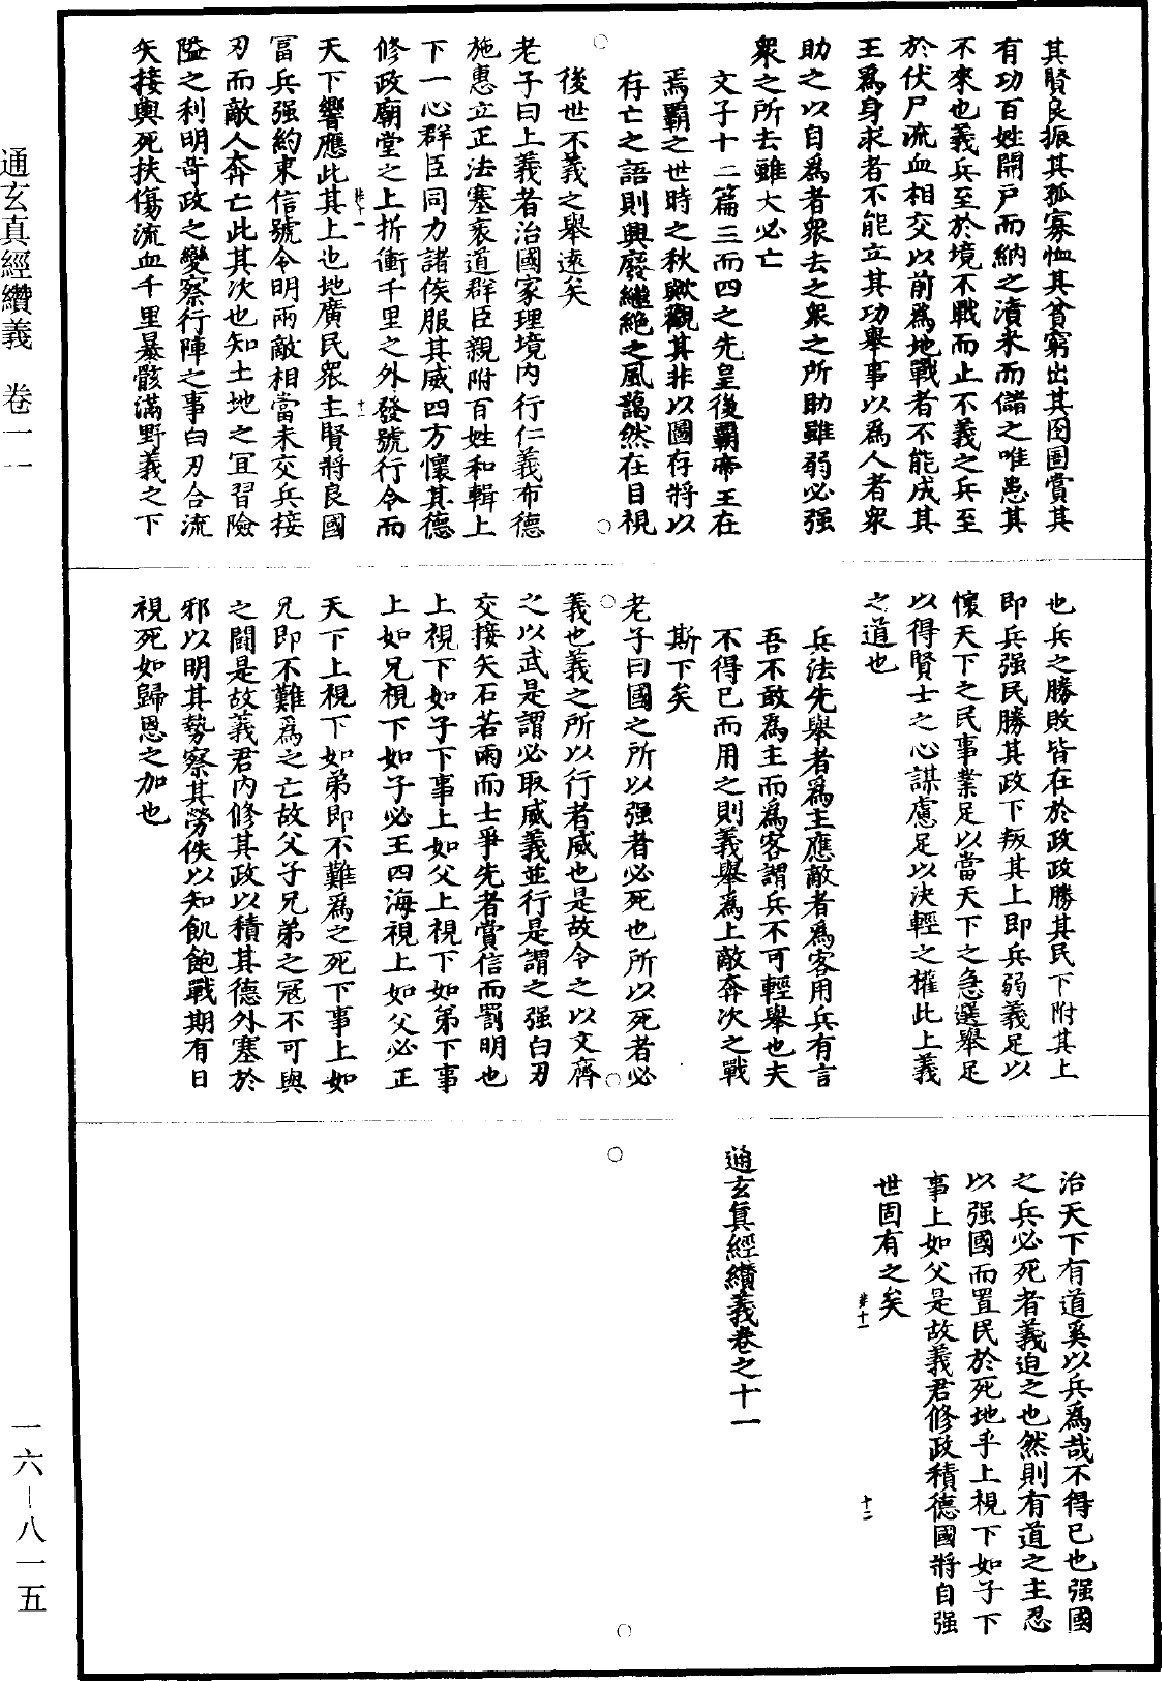 其賢良振其孤寡恤其貧窮出其囹圄賞其
有功百姓開戶而納之漬米而儲之唯恐其
不來也義兵至於境不戰而止不義之兵至
於伏尸流血相交以前為地戰者不能成其
王為身求者不能立其功舉事以為人者眾
助之以自為者眾去之眾之所助雖弱必强
眾之所去雖大必亡
文子十二篇三而四之先皇後霸帝王在
焉霸之世時之秋歟觀其非以圖存將以
存亡之語則興廢繼絕之風藹然在目視
後世不義之舉遠矣
老子曰上義者治國家理境內行仁義布德
施惠立正法塞衺道群臣親附百姓和輯上
下一心群臣同力諸侯服其威四方懷其德
修政廟堂之上折衝千里之外發號行令而
天下響應此其上也地廣民眾主賢將良國
富兵强約束信號令明兩敵相當未交兵接
刃而敵人奔亡此其次也知土地之宜習險
隘之利明奇政之變察行陣之事白刃合流
矢接輿死扶傷流血千里暴骸滿野義之下
也兵之勝敗皆在於政政勝其民下附其上
即兵强民勝其政下叛其上即兵弱義足以
懷天下之民事業足以當天下之急選舉足
以得賢士之心謀慮足以決輕之權此上義
之道也
兵法先舉者為主應敵者為客用兵有言
吾不敢為主而為客謂兵不可輕舉也夫
不得已而用之則義舉為上敵奔次之戰
斯下矣
老子曰國之所以强者必死也所以死者必
義也義之所以行者威也是故令之以文齊
之以武是謂必取威義並行是謂之强白刃
交接矢石若雨而士爭先者賞信而罰明也
上視下如子下事上如父上視下如弟下事
上如兄視下如子必王四海視上如父必正
天下上視下如弟即不難為之死下事上如
兄即不難為之亡故父子兄弟之寇不可與
之鬪是故義君內修其政以積其德外塞於
邪以明其勢察其勞佚以知飢飽戰期有日
視死如歸恩之加也
治天下有道奚以兵為哉不得已也强國
之兵必死者義迫之也然則有道之主忍
以强國而置民於死地乎上視下如子下
事上如父是故義君修政積德國將自强
世固有之矣
通玄真經纘義卷之十一
通玄真經纘義　卷一一
一六—八一五